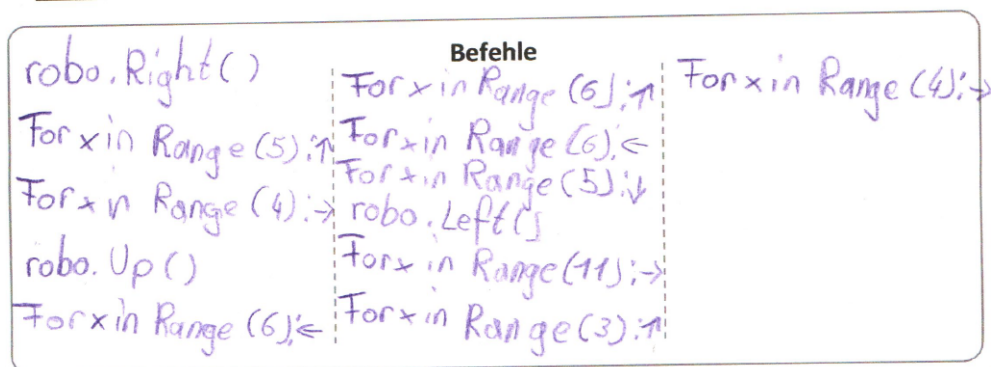 Befehle
robo.Right()
For x in Range (5):↑
For x in Range (4):→
robo.Up()
For x in Range (6):←
For x in Range (6):↑
For x in Range (6):←
For x in Range (5):↓
robo.Left()
For x in Range (11):→
For x in Range (3):↑
For x in Range (4):→